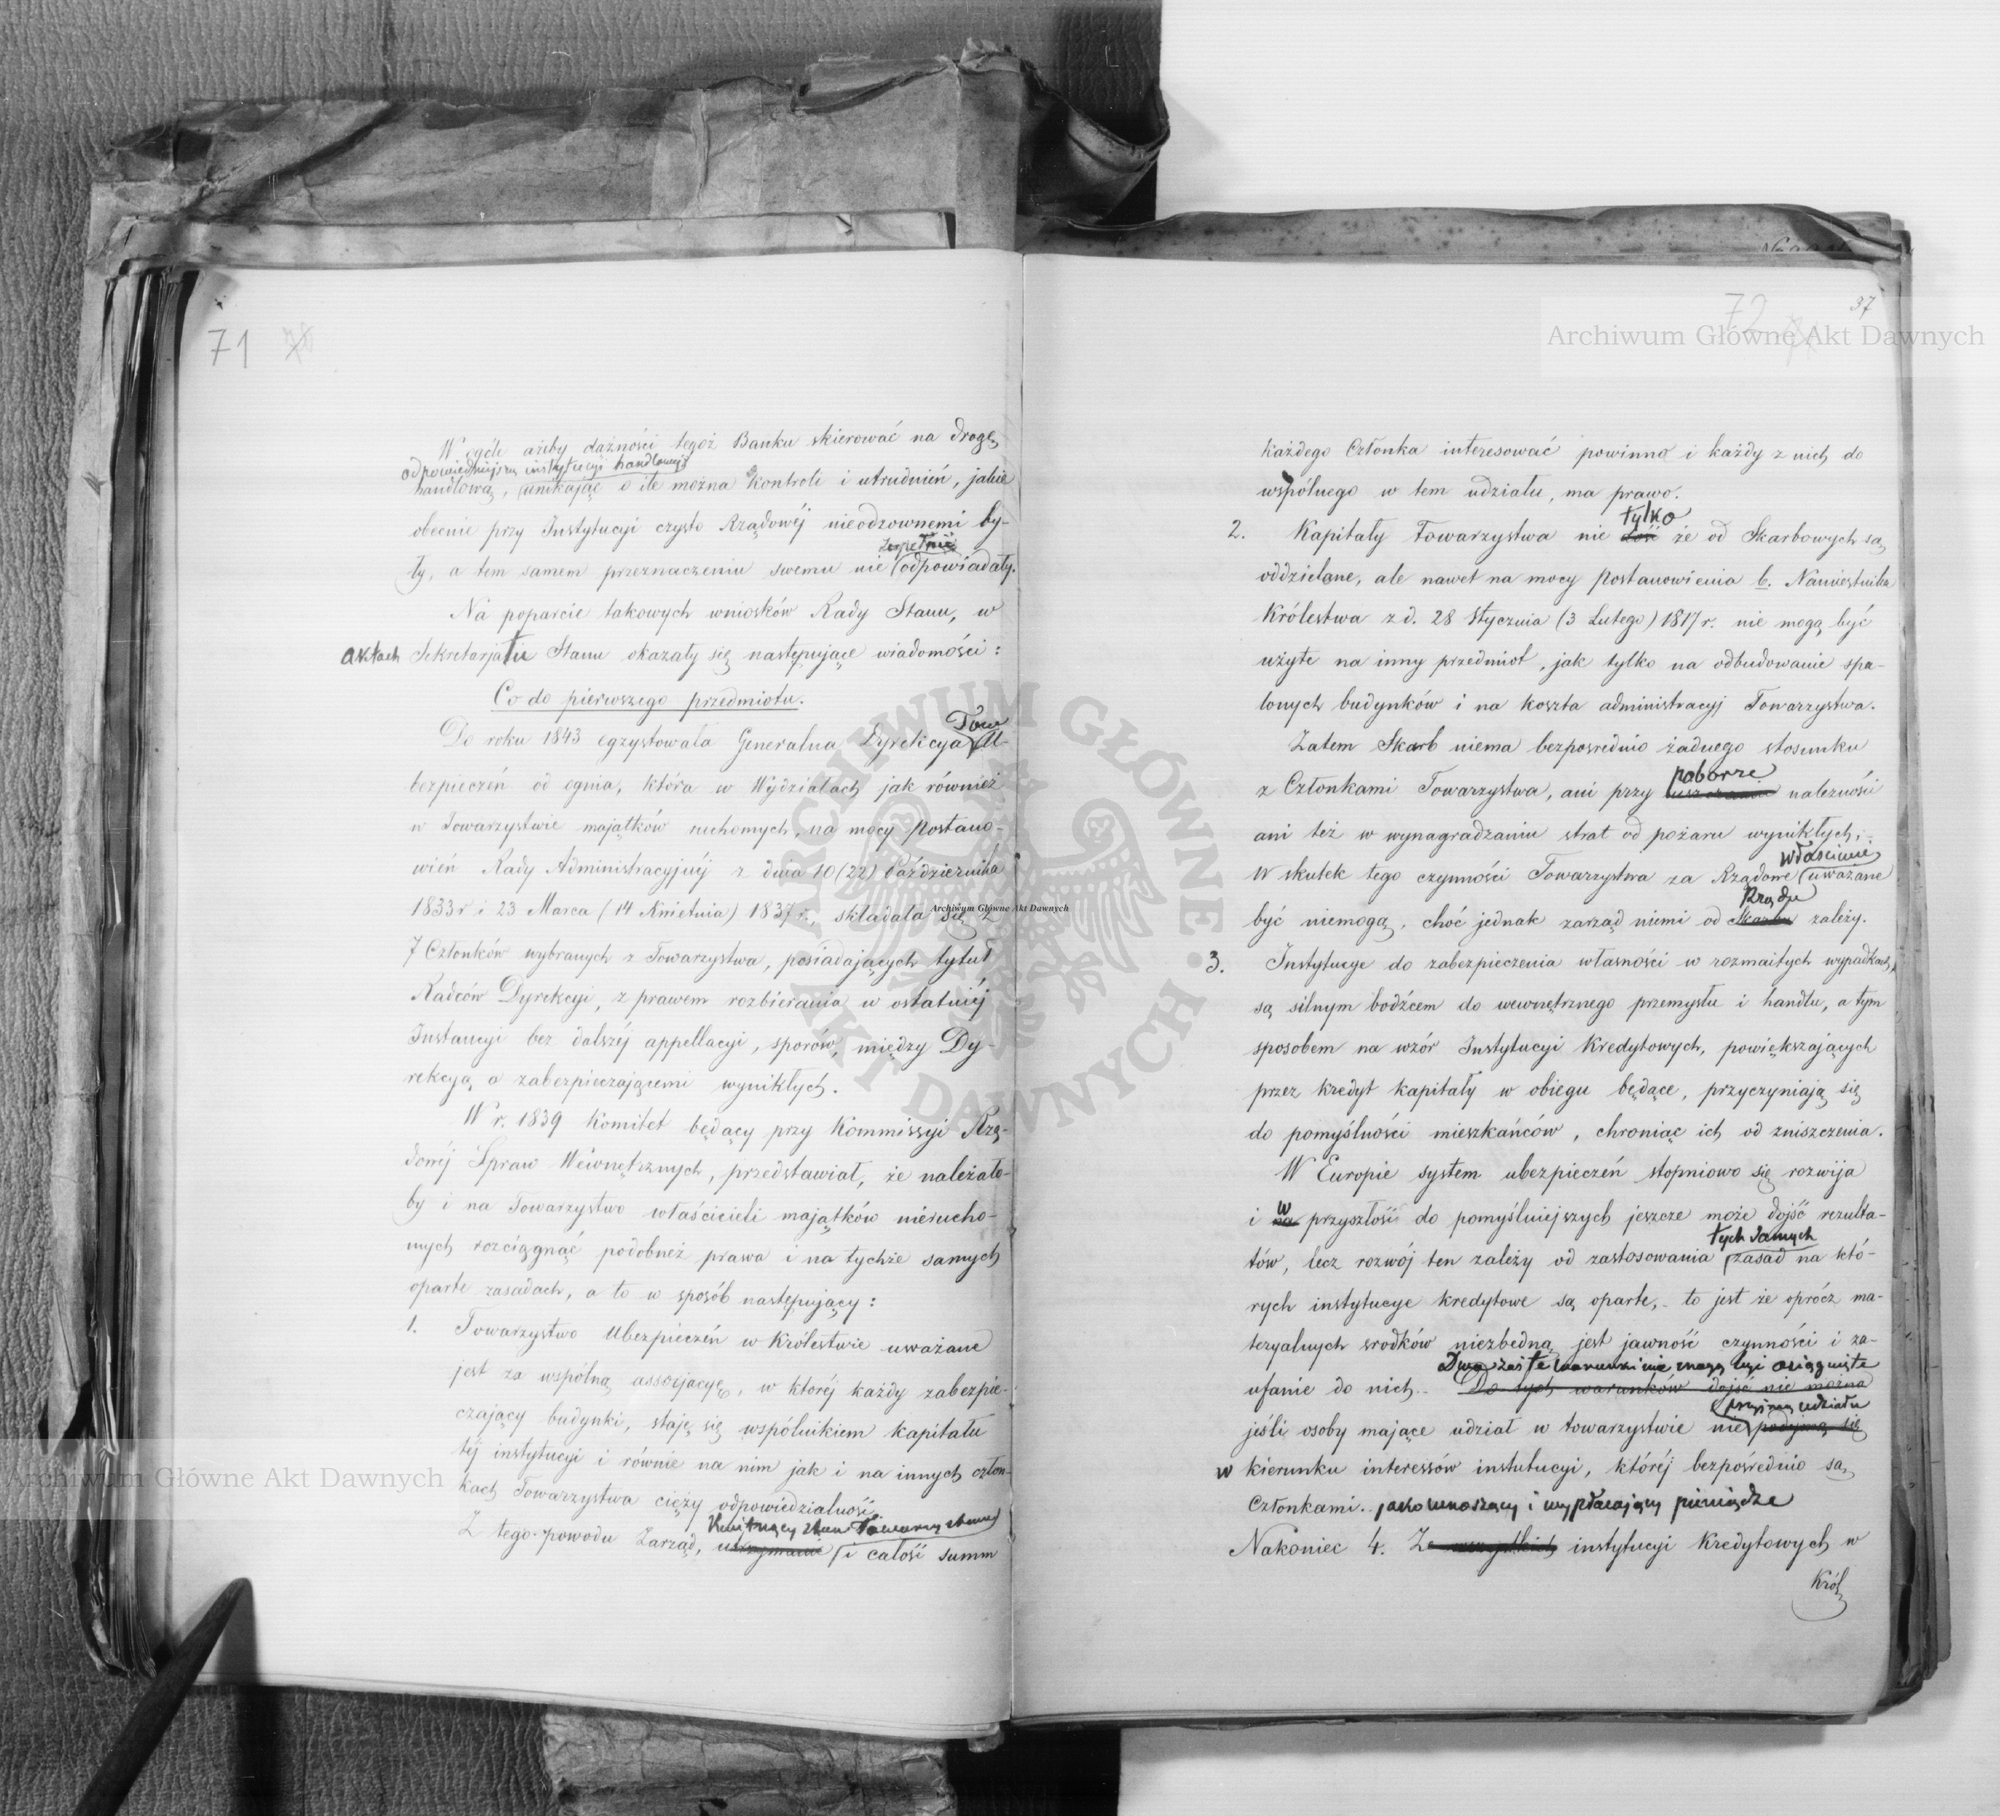 71 70
W ogóle ażeby dążności tegoż Banku skierować na drogę
odpowiedniejszą instytucyi handlowej
handlową, unikając o ile można kontroli i utrudnień, jakie
obecnie przy Instytucyi czysto Rządowéj nieodzownemi by-
zupełnie
ły, a tem samem przeznaczeniu swemu nie odpowiadały.
Na poparcie takowych wniosków Rady Stanu, w
aktach Sekretarjatu Stanu okazały się następujące wiadomości:
Co do pierwszego przedmiotu.
Tow
Do roku 1843 egzystowała Generalna Dyrekcya U-
bezpieczeń od ognia, która w Wydziałach jak również
w Towarzystwie majątków ruchomych, na mocy Postano-
wień Rady Administracyjnéj z dnia 10 (22) Października
1833 r i 23 Marca (14 Kwietnia) 1837 r., składała się z
7 Członków wybranych z Towarzystwa, posiadających tytuł
Radców Dyrekcyi, z prawem rozbierania w ostatniéj
Instancyi bez dalszéj appellacyi, sporów, między Dy-
rekcyą a zabezpieczającemi wynikłych.
W r. 1839 Komitet będący przy Kommissyi Rzą-
dowéj Spraw Wewnętrznych, przedstawiał, że należało-
by i na Towarzystwo właścicieli majątków nierucho-
mych rozciągnąć podobneż prawa i na tychże samych
oparte zasadach, a to w sposób następujący:
1. Towarzystwo Ubezpieczeń w Królestwie uważane
jest za wspólną assocjacyę, w któréj każdy zabezpie-
czający budynki, staję się wspólnikiem kapitału
téj instytucyi i równie na nim jak i na innych człon-
kach Towarzystwa cięży odpowiedzialność.
Kwitnący stan Towarzystwa
Z tego powodu Zarząd, utrzymanie i całość summ
72 37
każdego Członka interesować powinno i każdy z nich do
wspólnego w tem udziału, ma prawo.
tylko
2. Kapitały Towarzystwa nie dość że od Skarbowych są
oddzielane, ale nawet na mocy Postanowienia b. Namiestnika
Królestwa z d. 28 Stycznia (3 Lutego) 1817 r. nie mogą być
użyte na inny przedmiot, jak tylko na odbudowanie spa-
lonych budynków i na koszta administracyj Towarzystwa.
Zatem Skarb niema bezpośrednio żadnego stosunku
poborze
z Członkami Towarzystwa, ani przy należności
ani też w wynagradzaniu strat od pożaru wynikłych;
właściwie
W skutek tego czynności Towarzystwa za Rządowe uważane
Rządu
być niemogą, choć jednak zarząd niemi od Skarbu zależy.
3. Instytucye do zabezpieczenia własności w rozmaitych wypadkach
są silnym bodźcem do wewnętrznego przemysłu i handlu, a tym
sposobem na wzór Instytucyi Kredytowych, powiększających
przez kredyt kapitały w obiegu będące, przyczyniają się
do pomyślności mieszkańców, chroniąc ich od zniszczenia.
W Europie system ubezpieczeń stopniowo się rozwija
w
i na przyszłość do pomyślniejszych jeszcze może dojść rezulta-
tych samych
tów, lecz rozwój ten zależy od zastosowania zasad na któ-
rych instytucye kredytowe są oparte, to jest że oprócz ma-
teryalnych środków niezbędną jest jawność czynności i za-
Dwa zaś te warunki nie mogą być osiągnięte
ufanie do nich. Do tych warunków dojść nie można
przyjmą udziału
jeśli osoby mające udział w towarzystwie nie podejmą się
w kierunku interessów instutucyi, któréj bezpośrednio są
Członkami. jako wnoszący i wypłacający pieniądze
Nakoniec 4. Ze wszystkich instytucyi Kredytowych w
Król
Archiwum Główne Akt Dawnych
Archiwum Główne Akt Dawnych
Archiwum Główne Akt Dawnych
ARCHIWUM GŁÓWNE AKT DAWNYCH